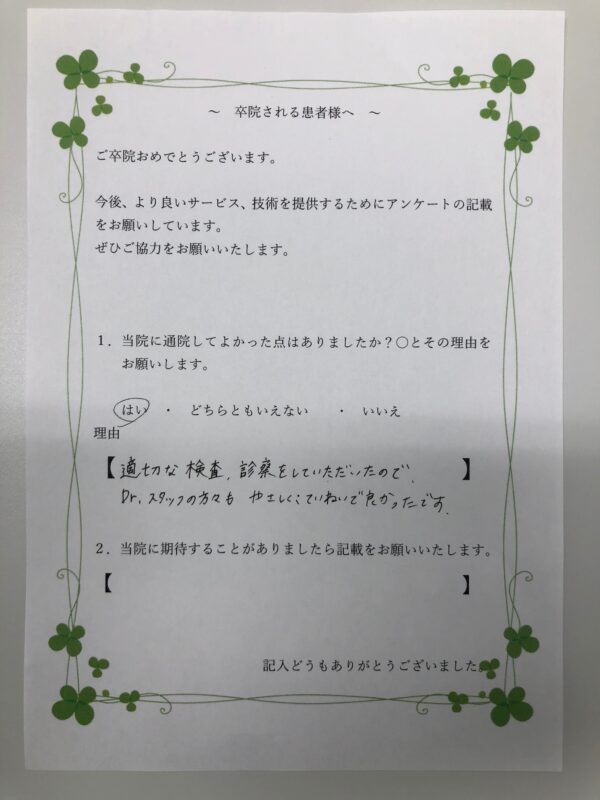 ～　卒院される患者様へ　～
ご卒院おめでとうございます。
今後、より良いサービス、技術を提供するためにアンケートの記載
をお願いしています。
ぜひご協力をお願いいたします。
１．当院に通院してよかった点はありましたか？〇とその理由を
お願いします。
はい　・　どちらともいえない　・　いいえ
理由
【適切な検査、診察をしていただいたので、】
Dr，スタッフの方々も　やさしくていねいで良かったです。
２．当院に期待することがありましたら記載をお願いいたします。
【　】
記入どうもありがとうございました。